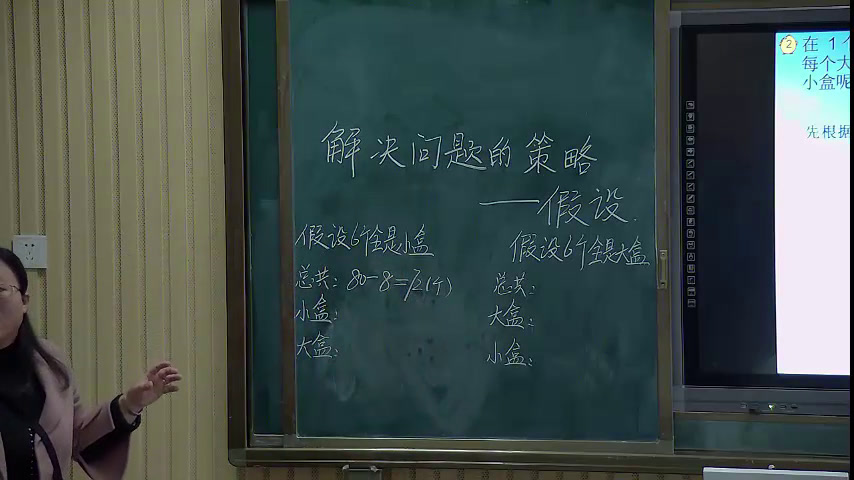 解决问题的策略
——假设.
假设6个全是小盒
总共：80-8=72(个)
小盒：
大盒：
假设6个全是大盒
总共：
大盒：
小盒：
2 在1个
每个大
小盒呢
先根据